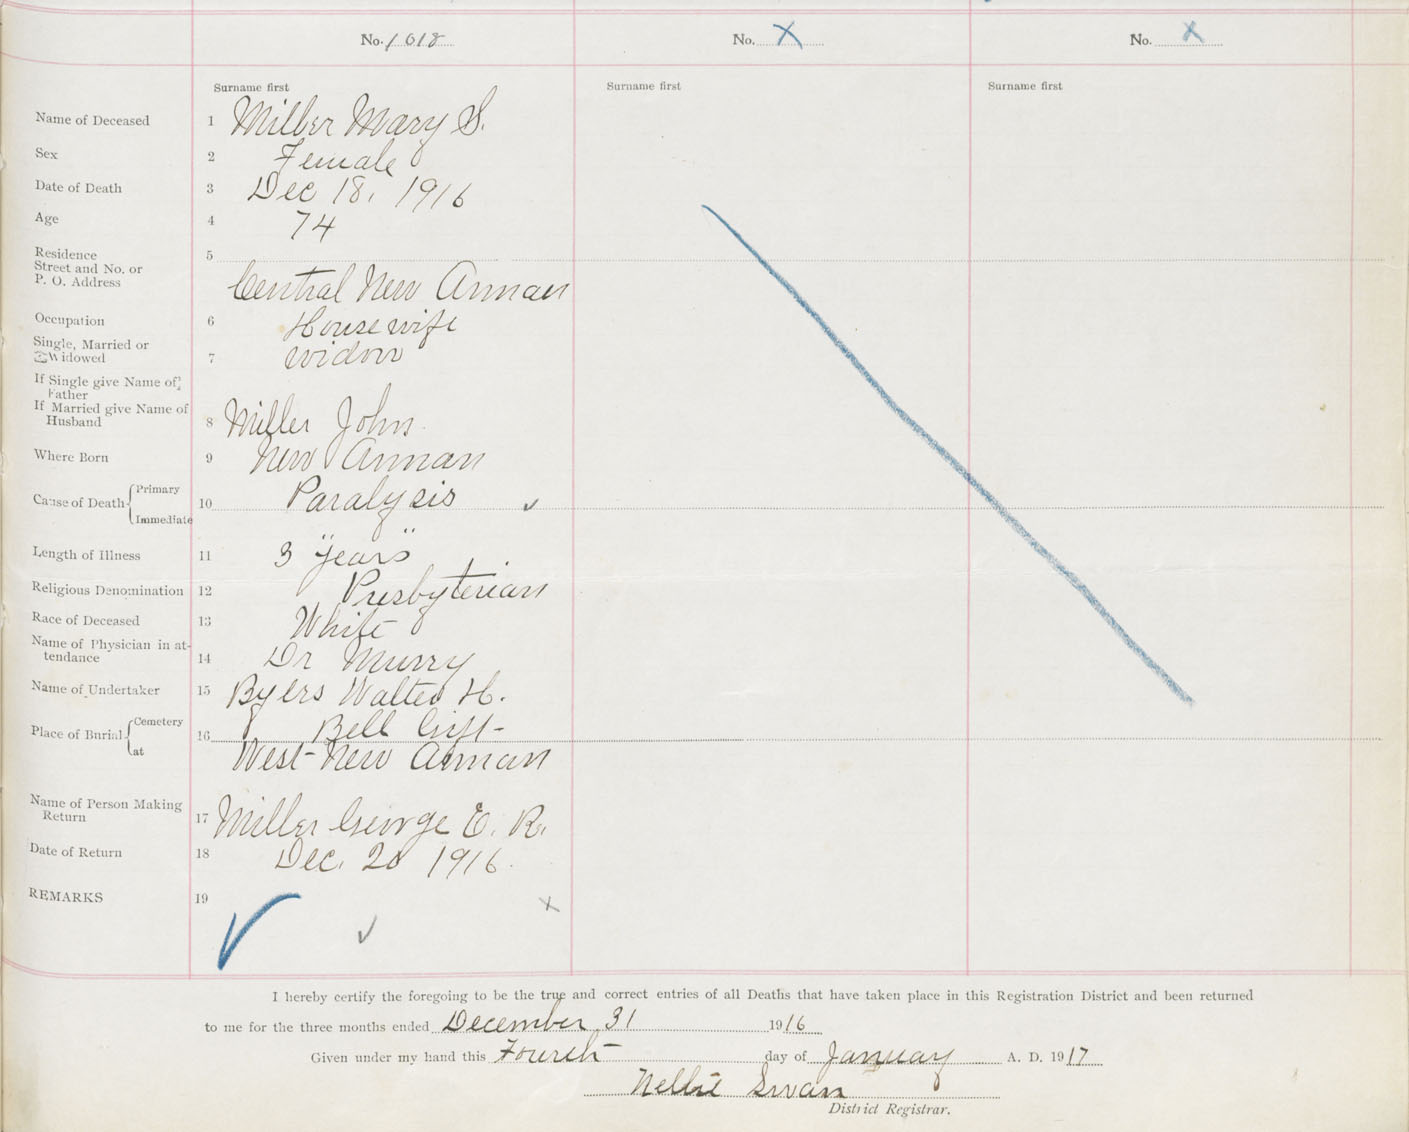 No. 1618 No. X No. X
Surname first Surname first Surname first
Name of Deceased 1 Miller Mary S.
Sex 2 Female
Date of Death 3 Dec 18, 1916
Age 4 74
Residence 5
Street and No. or
P. O. Address Central New Annan
Occupation 6 Housewife
Single, Married or
Widowed 7 widow
If Single give Name of
Father
If Married give Name of
Husband 8 Miller John
Where Born 9 New Annan
Cause of Death Primary 10 Paralysis
Immediate
Length of Illness 11 3 "years"
Religious Denomination 12 Presbyterian
Race of Deceased 13 White
Name of Physician in at-
tendance 14 Dr Murry
Name of Undertaker 15 Byers Walter H.
Place of Burial Cemetery 16 Bell
at West New Annan
Name of Person Making
Return 17 Miller George E. R.
Date of Return 18 Dec. 20 1916.
REMARKS 19
I hereby certify the foregoing to be the true and correct entries of all Deaths that have taken place in this Registration District and been returned
to me for the three months ended December 31 1916
Given under my hand this Fourth day of January A. D. 1917
Nellie Swan
District Registrar.